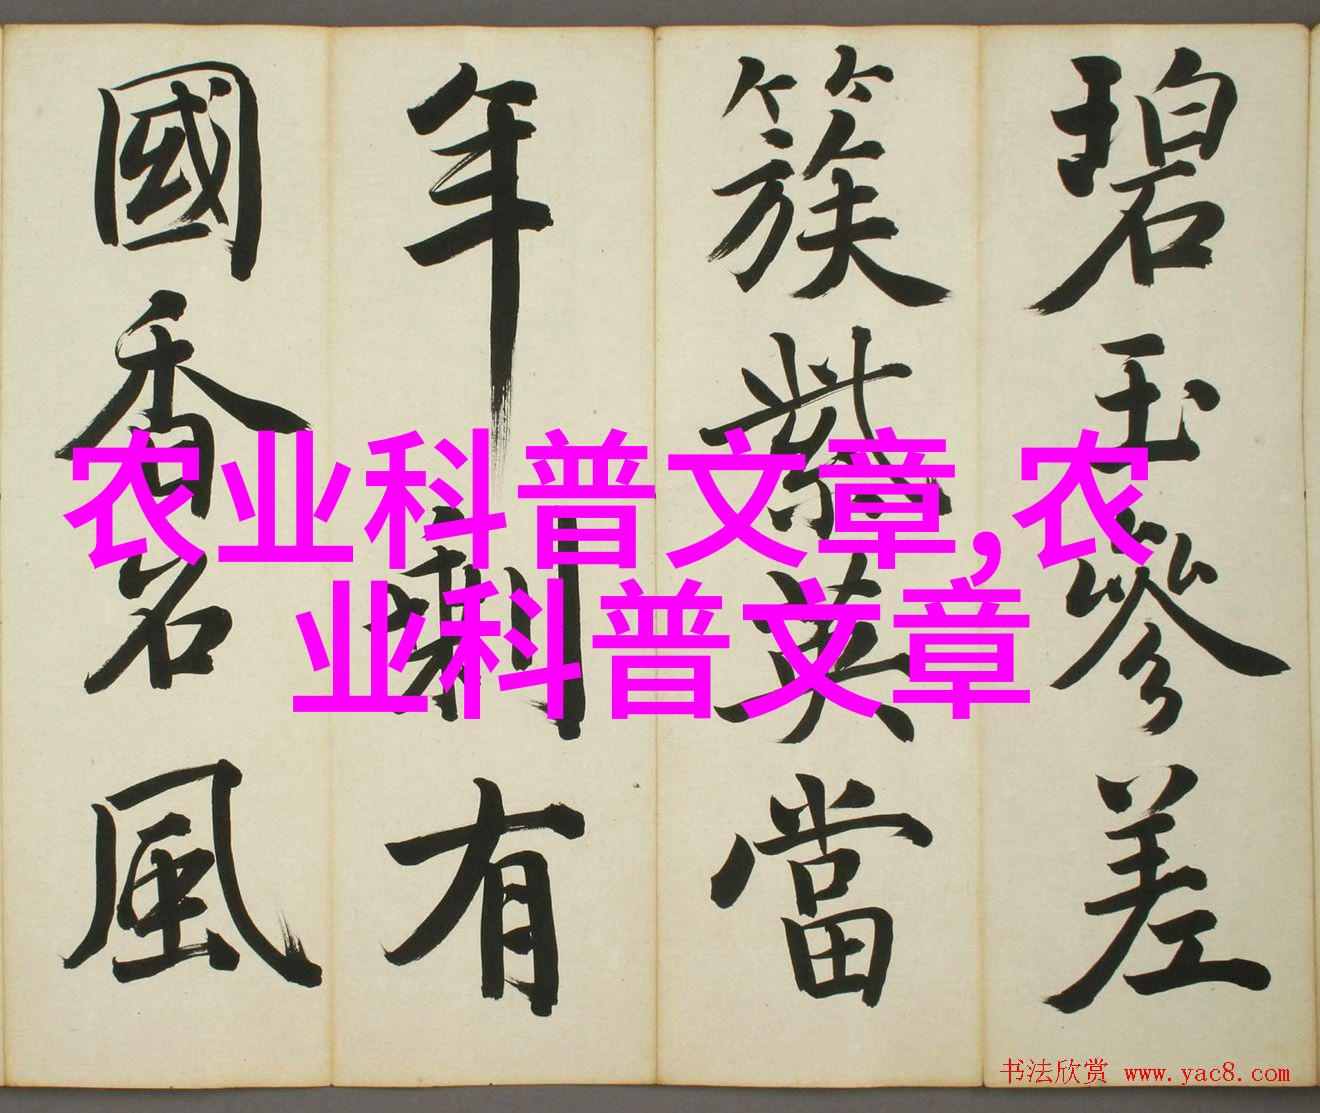 碧玉參差
簇紫英當
年剩有
國香名風
农业科普文章,农
业科普文章
书法欣赏 www.yac8.com